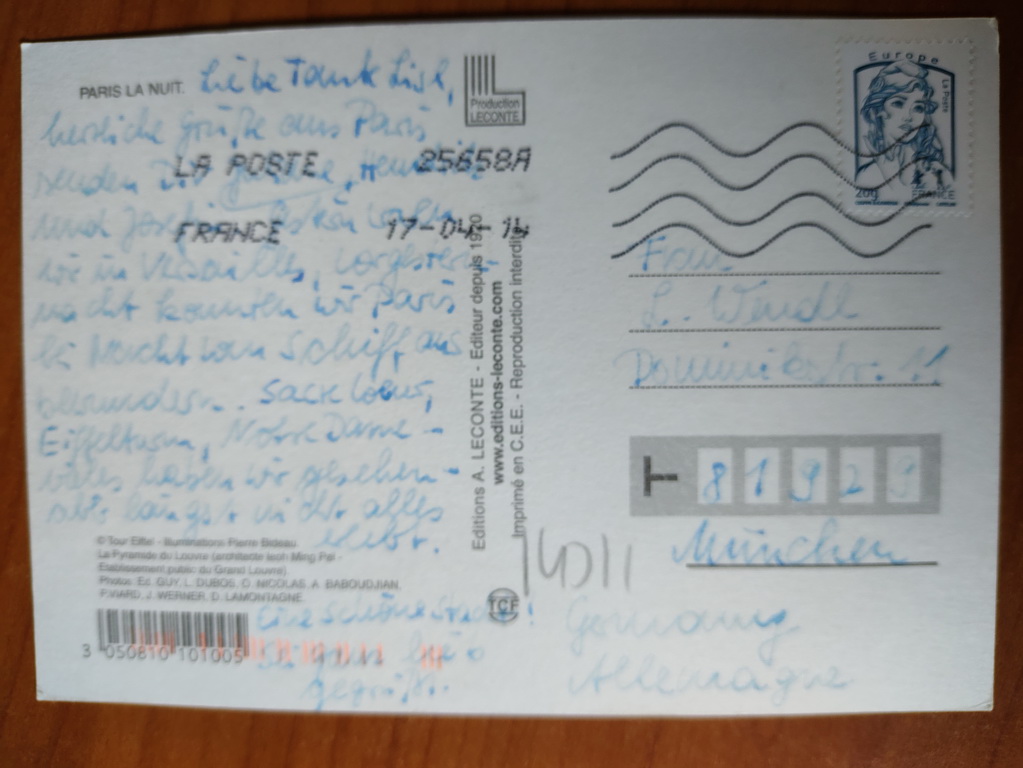 PARIS LA NUIT.
Liebe Tante Lisl,
herzliche Grüße aus Paris
senden Dir
und
wir in Versailles,
nacht konnten wir Paris
bei Nacht vom Schiff aus
bewundern. Sacre Coeur,
Eiffelturm, Notre Dame -
vieles haben wir gesehen -
aber längst nicht alles
eine schöne Stadt!
gegrüßt.
LA POSTE 25658A
FRANCE 17-04-14
Production
LECONTE
Editions A. LECONTE - Editeur depuis 1920
www.editions-leconte.com
Imprimé en C.E.E. - Reproduction interdite
© Tour Eiffel - Illuminations Pierre Bideau.
La Pyramide du Louvre (architecte Ieoh Ming Pei -
Etablissement public du Grand Louvre).
Photos: Ed. GUY, L. DUBOS, O. NICOLAS, A. BABOUDJIAN,
P. VIARD, J. WERNER, D. LAMONTAGNE.
3 050810 101005
TCF
Europe
La Poste
20g
FRANCE
Frau
L. Wendl
Dominikstr. 11
T
81929
München
Germany
Allemagne